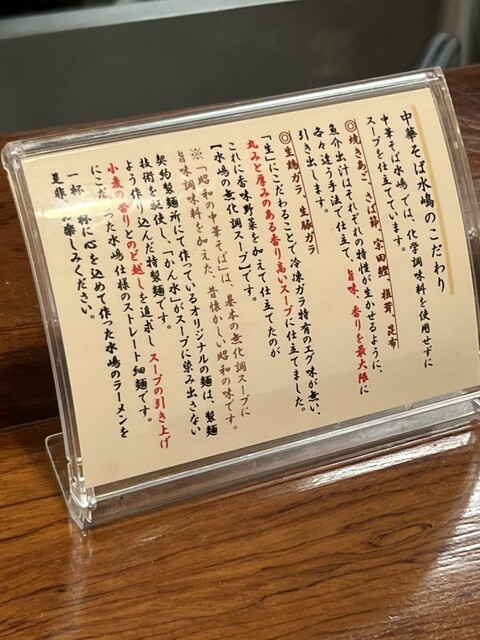 中華そば水嶋のこだわり
中華そば水嶋では、化学調味料を使用せずに
スープを仕立ています。
◎焼きあご、さば節、宗田鰹、椎茸、昆布
魚介出汁はそれぞれの特性が生かせるように、
各々違う手法で仕立て、旨味、香りを最大限に
引き出します。
◎生鶏ガラ、生豚ガラ
「生」にこだわることで冷凍ガラ特有のエグ味が無い、
丸みと厚みのある香り高いスープに仕立てました。
これに香味野菜を加えて仕立てたのが
【水嶋の無化調スープ】です。
※「昭和の中華そば」は、基本の無化調スープに
旨味調味料を加えた、昔懐かしい昭和の味です。
契約製麺所にて作っているオリジナルの麺は、製麺
技術を駆使し、「かん水」がスープに染み出さない
よう作り込んだ特製麺です。
小麦の香りとのど越しを追求し、スープの引き上げ
にこだわった水嶋仕様のストレート細麺です。
一杯一杯に心を込めて作った水嶋のラーメンを
是非お楽しみください。